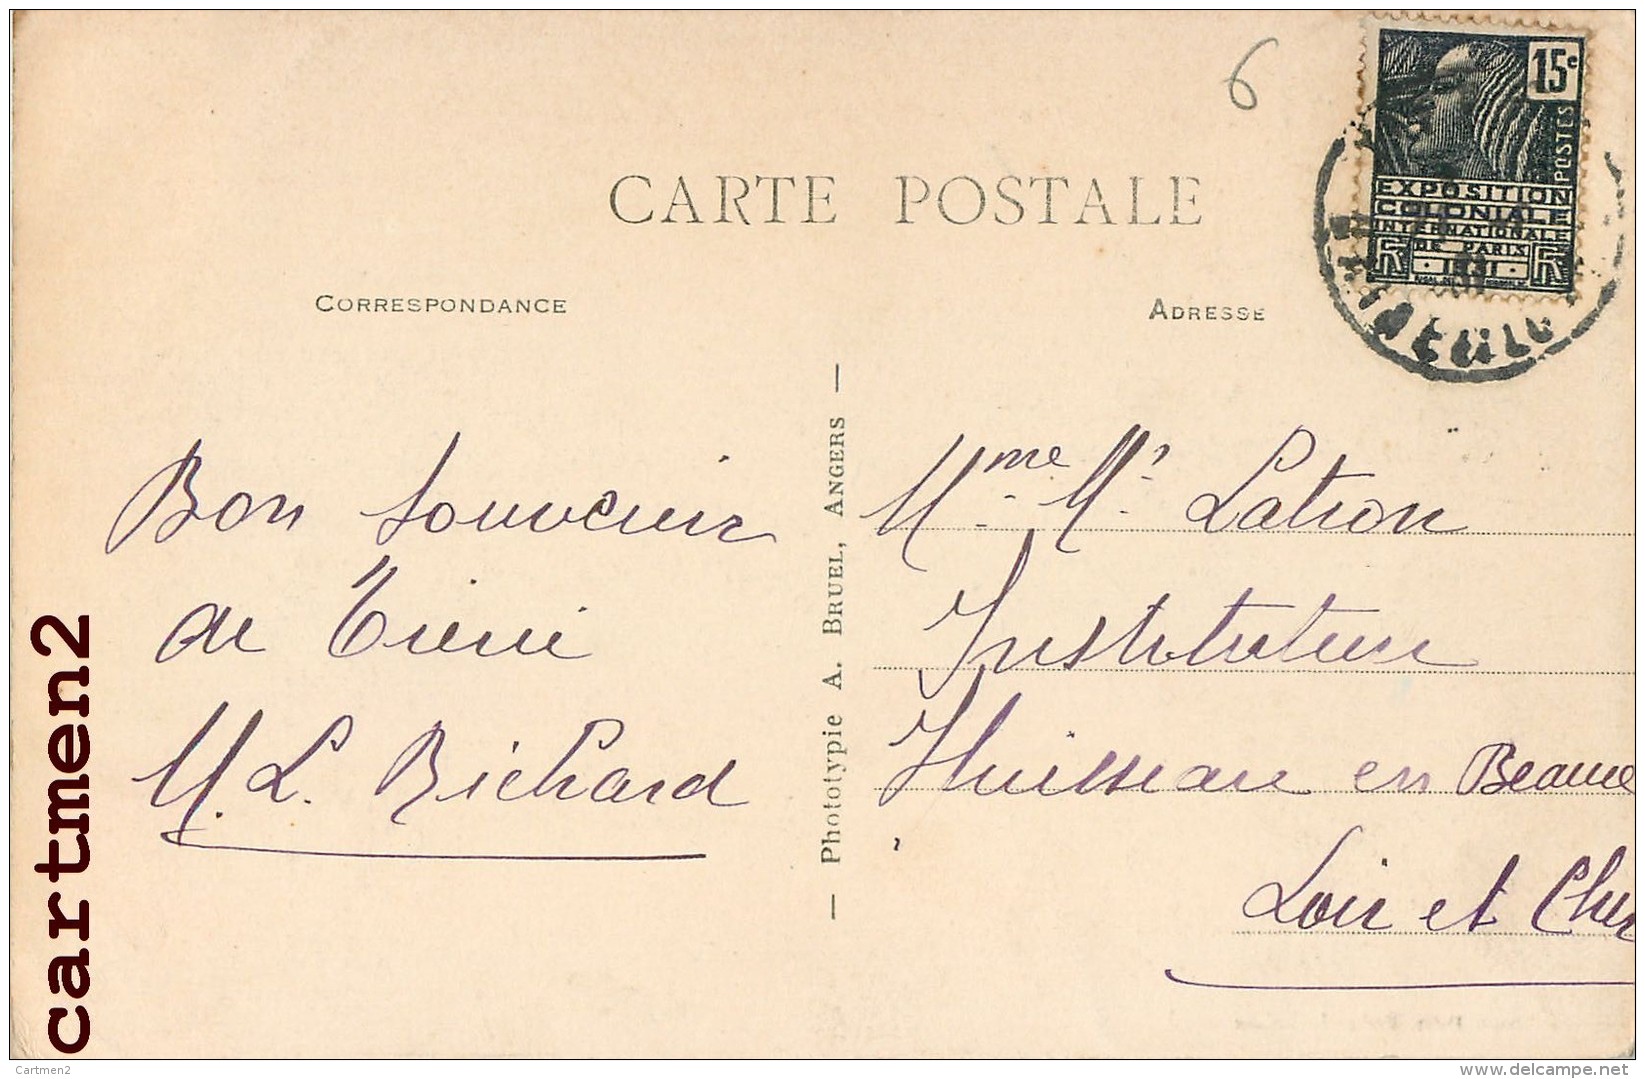 6
15c
POSTES
EXPOSITION
COLONIALE
INTERNATIONALE
DE PARIS
RF · 1931 · RF
CARTE POSTALE
CORRESPONDANCE
ADRESSE
Bon souvenir
de
M. L. Richard
— Phototypie A. BRUEL, ANGERS —
Mme. Mr. Latron
Instituteur
Huisseau en Beauce
Loir et Cher
cartmen2
Cartmen2
delcampe.net